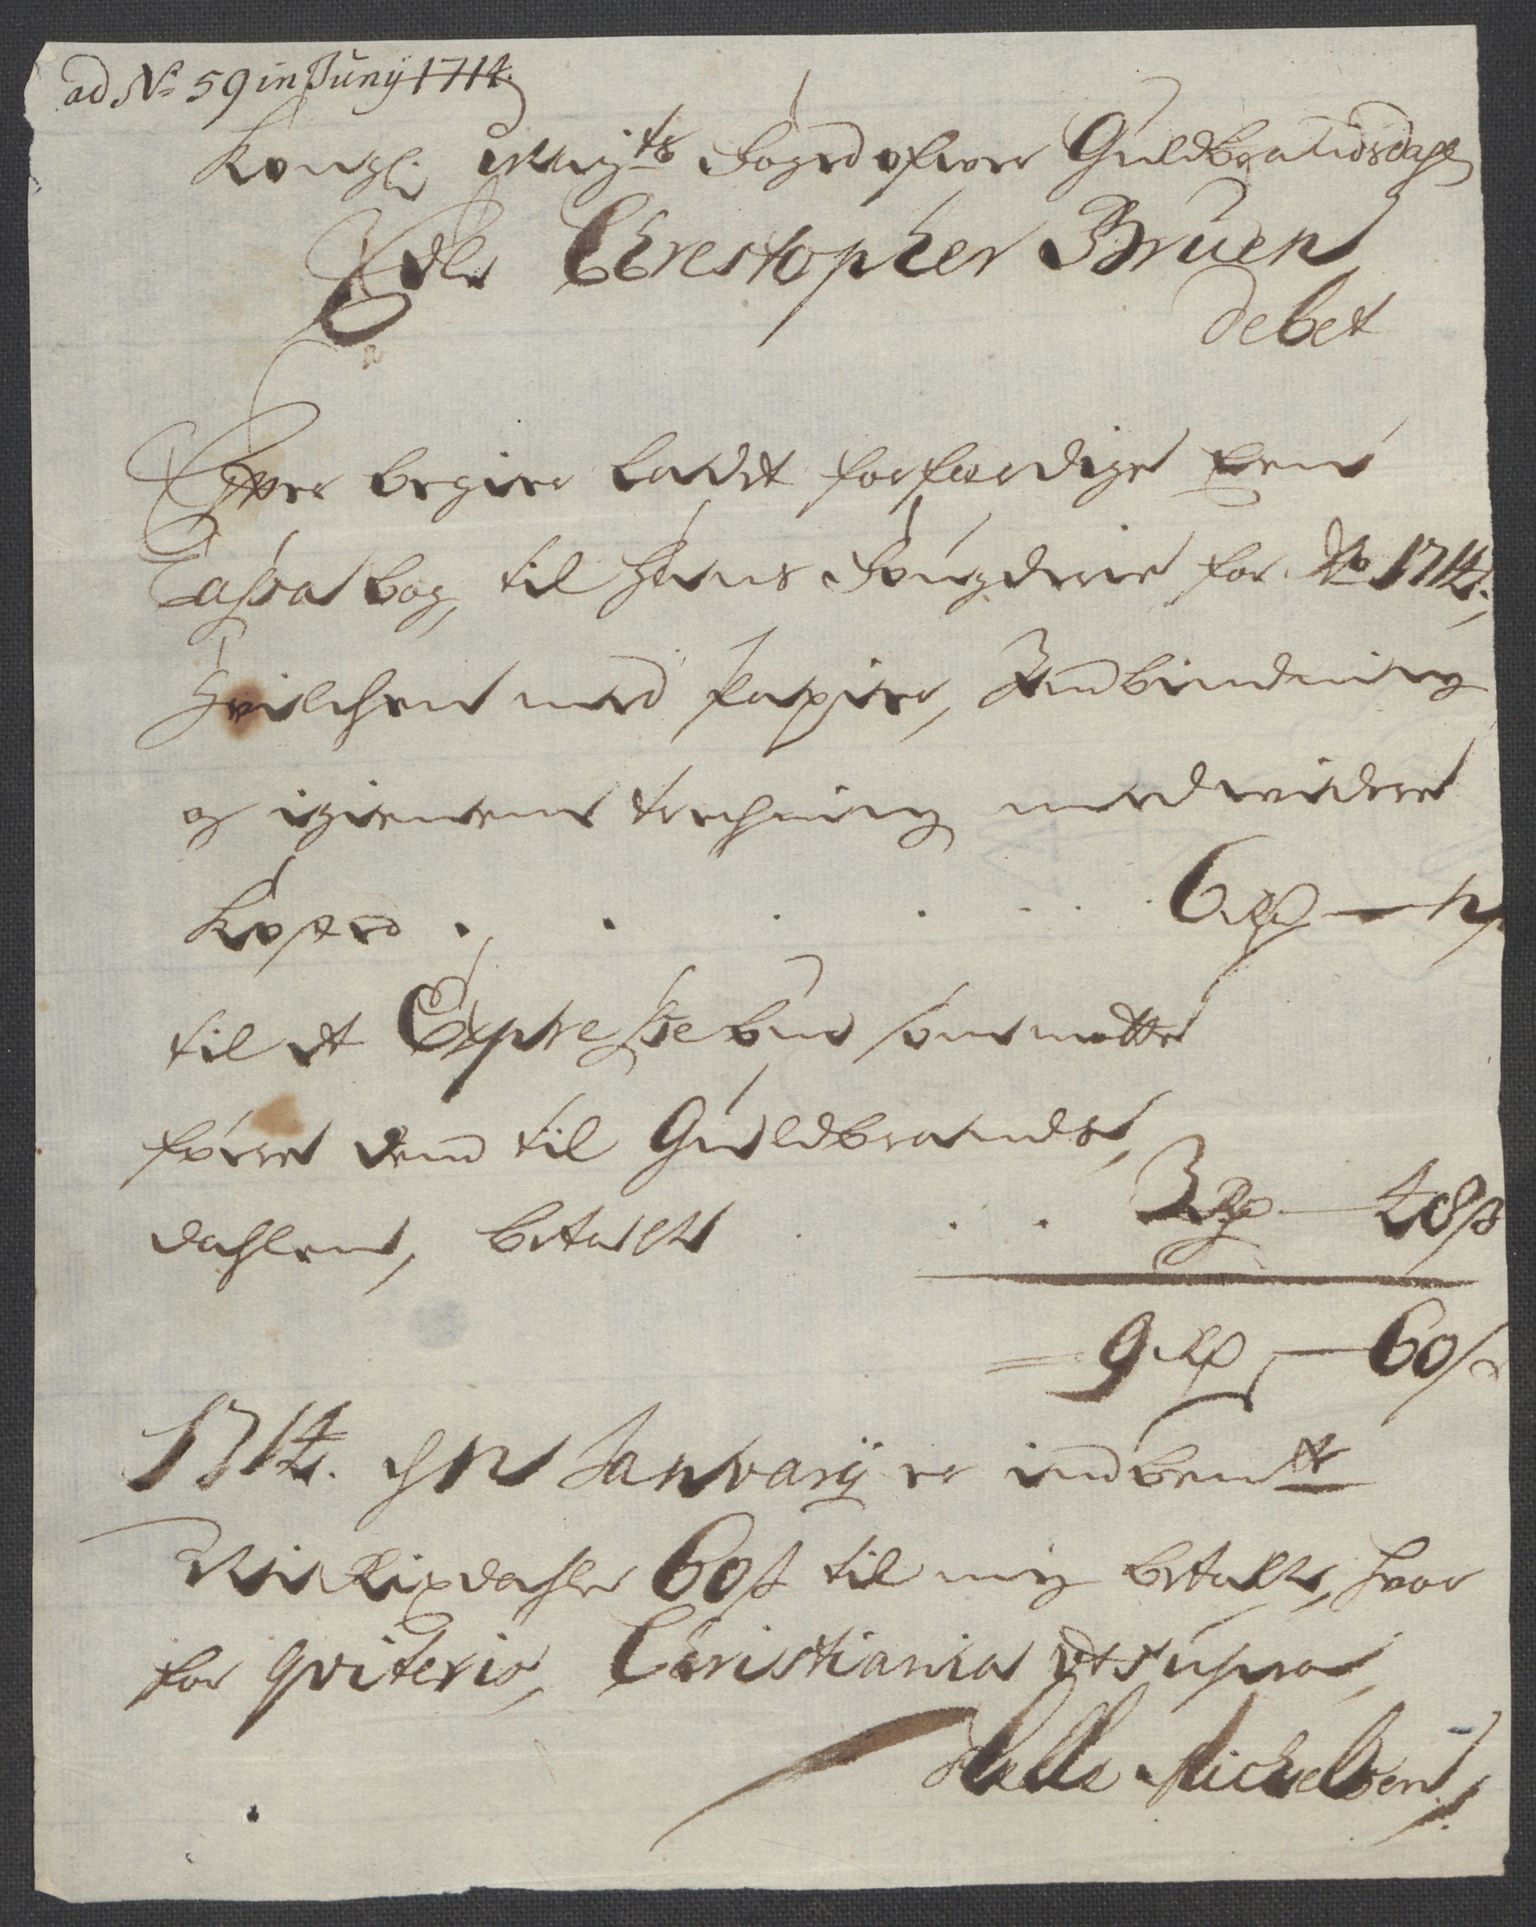 ad No 59 in Junij 1714.
Kongl: Mayts Foged ofver Guldbrandsdahl
Edle Chrestopher Bruen
debet
Efter begier ladet forfærdige Een
Cassa bog, til hans Fougderie for Ao 1714.,
hvilchen med Papier, Indbinding
og igiennem trechning med videre
Kosted . . . . . . 6 Rd — 12 s
til et Expresse bud som motte
føre dend til Guldbrands,
dahlen, betalt . . . 3 Rd — 48 s
9 Rd — 60 s
1714. d: 12 Janvarij er indbemte
Ni Rixdahler 60 s til mig betalt, hvor
for qviteris, Christiania ut supra,
Michelsen